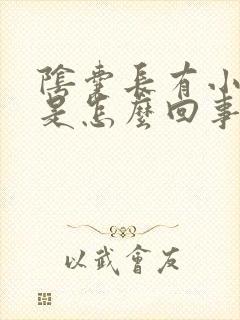 陰囊長有小
是怎麼回事
以武會友